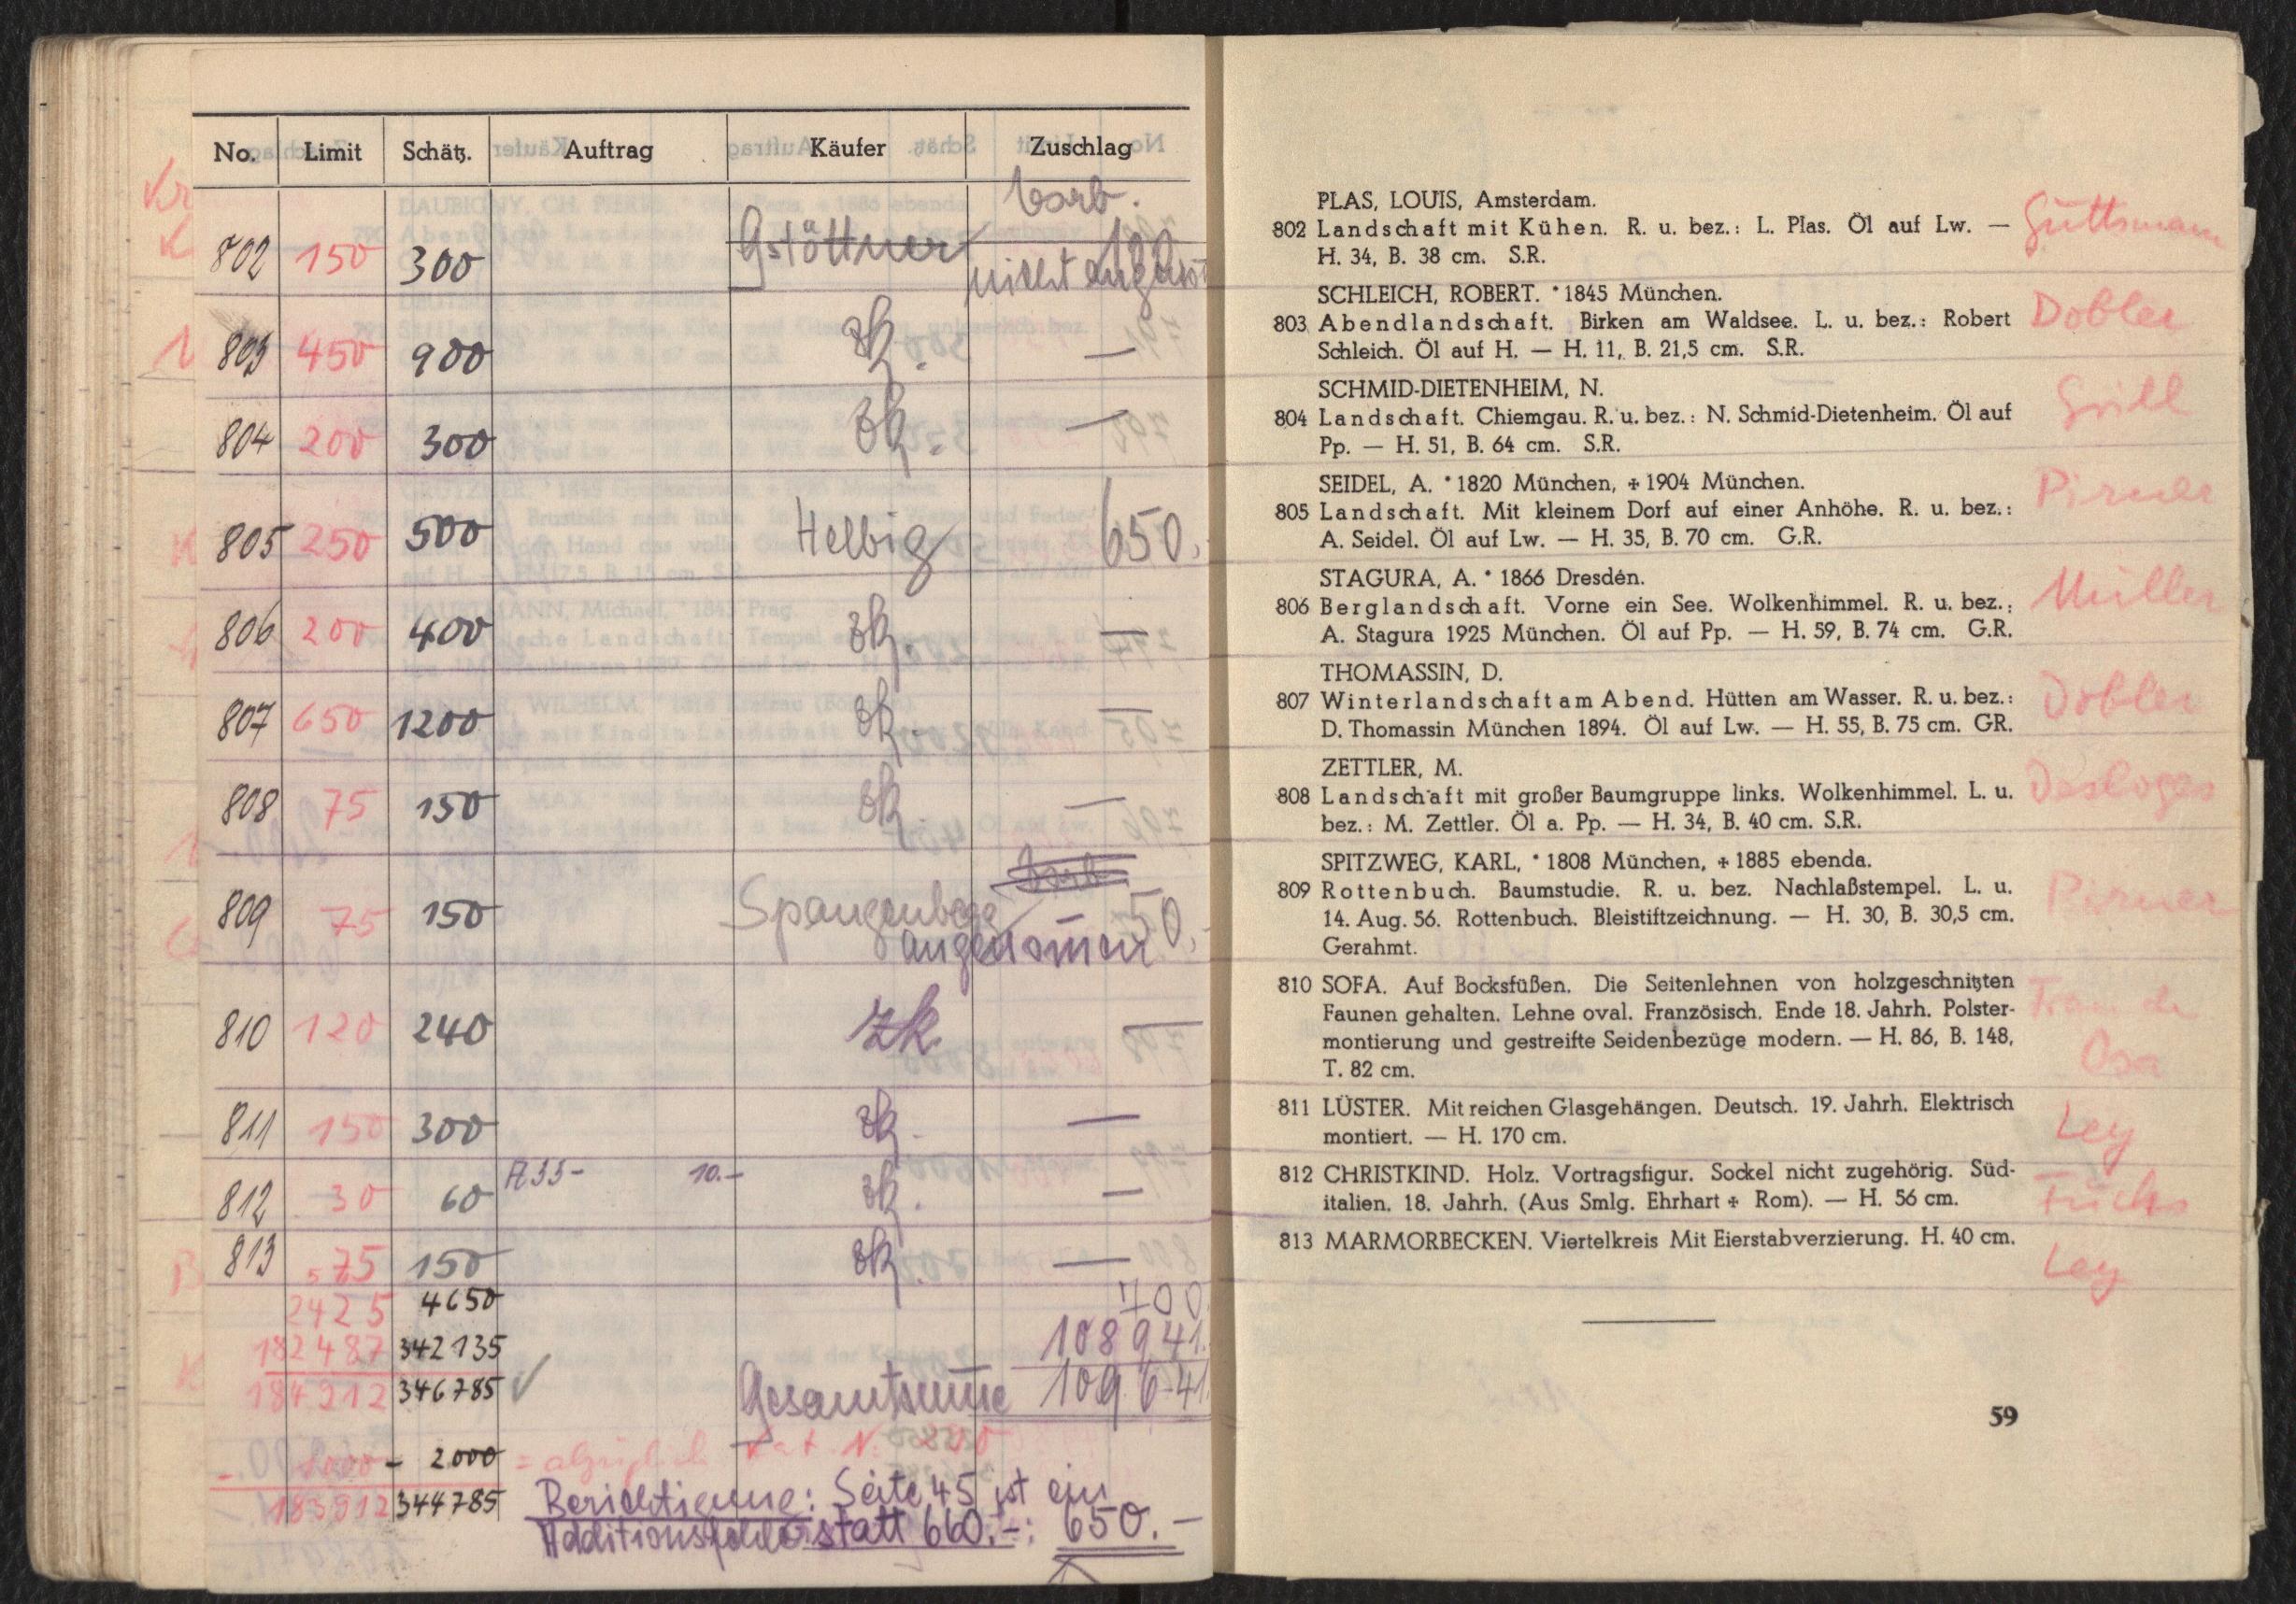 No. Limit Schätz. Auftrag Käufer Zuschlag
Vorb.
802 150 300 Gstöttner 100
nicht
803 450 900 zk. —
804 200 300 zk. —
805 250 500 Helbig 650.
806 200 400 zk. —
807 650 1200 zk. —
808 75 150 zk. —
809 75 150 Spangenberg 50,-
angenomen
810 120 240 zk. —
811 150 300 zk. —
812 30 60 A 35- 10.- zk. —
813 75 150 zk. —
2425 4650 700
182487 342135 108941.
184912 346785 Gesamtsume 109641.
- 1000 - 2000 = abzüglich Kat. N:
183912 344785
Berichtigung: Seite 45 ist ein
Additionsfehler statt 660.-: 650.-
PLAS, LOUIS, Amsterdam.
802 Landschaft mit Kühen. R. u. bez.: L. Plas. Öl auf Lw. — Guttsmann
H. 34, B. 38 cm. S.R.
SCHLEICH, ROBERT. * 1845 München.
803 Abendlandschaft. Birken am Waldsee. L. u. bez.: Robert Dobler
Schleich. Öl auf H. — H. 11, B. 21,5 cm. S.R.
SCHMID-DIETENHEIM, N.
804 Landschaft. Chiemgau. R. u. bez.: N. Schmid-Dietenheim. Öl auf Grill
Pp. — H. 51, B. 64 cm. S.R.
SEIDEL, A. * 1820 München, + 1904 München.
805 Landschaft. Mit kleinem Dorf auf einer Anhöhe. R. u. bez.: Pirner
A. Seidel. Öl auf Lw. — H. 35, B. 70 cm. G.R.
STAGURA, A. * 1866 Dresden.
806 Berglandschaft. Vorne ein See. Wolkenhimmel. R. u. bez.: Müller
A. Stagura 1925 München. Öl auf Pp. — H. 59, B. 74 cm. G.R.
THOMASSIN, D.
807 Winterlandschaft am Abend. Hütten am Wasser. R. u. bez.: Dobler
D. Thomassin München 1894. Öl auf Lw. — H. 55, B. 75 cm. GR.
ZETTLER, M.
808 Landschaft mit großer Baumgruppe links. Wolkenhimmel. L. u. Desloges
bez.: M. Zettler. Öl a. Pp. — H. 34, B. 40 cm. S.R.
SPITZWEG, KARL, * 1808 München, + 1885 ebenda.
809 Rottenbuch. Baumstudie. R. u. bez. Nachlaßstempel. L. u. Pirner
14. Aug. 56. Rottenbuch. Bleistiftzeichnung. — H. 30, B. 30,5 cm.
Gerahmt.
810 SOFA. Auf Bocksfüßen. Die Seitenlehnen von holzgeschnitzten
Faunen gehalten. Lehne oval. Französisch. Ende 18. Jahrh. Polster-
montierung und gestreifte Seidenbezüge modern. — H. 86, B. 148,
T. 82 cm.
811 LÜSTER. Mit reichen Glasgehängen. Deutsch. 19. Jahrh. Elektrisch Ley
montiert. — H. 170 cm.
812 CHRISTKIND. Holz. Vortragsfigur. Sockel nicht zugehörig. Süd- Fuchs
italien. 18. Jahrh. (Aus Smlg. Ehrhart + Rom). — H. 56 cm.
813 MARMORBECKEN. Viertelkreis Mit Eierstabverzierung. H. 40 cm. Ley
59